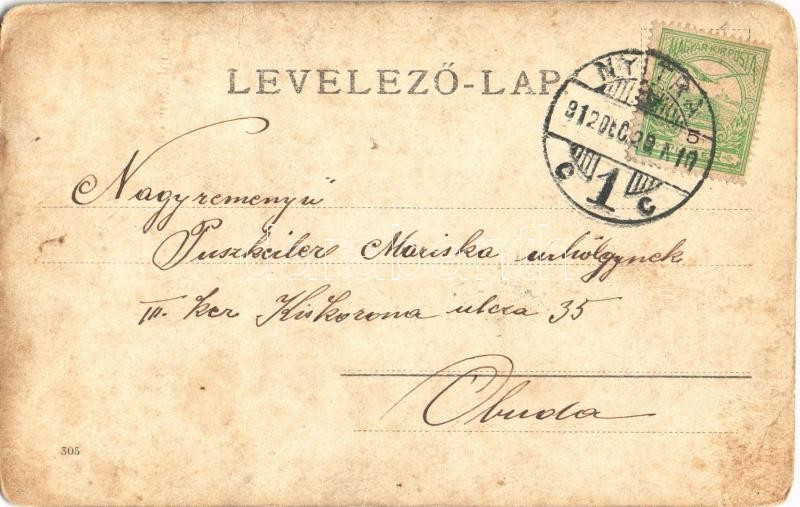 LEVELEZŐ-LAP
MAGYAR·KIR·POSTA
5
NYITRA
912 DEC. 29
1
C C
Nagyreményű
Puszkeiler Mariska urhölgynek
III. ker Kiskorona utcza 35
Obuda
305